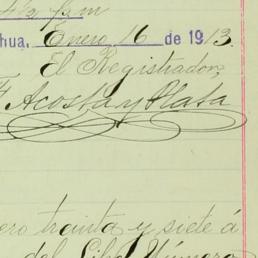 4 1/2 p m
hua, Enero 16 de 1913.
El Registrador,
Acosta y Plata
ero treinta y siete á
del Libro Número